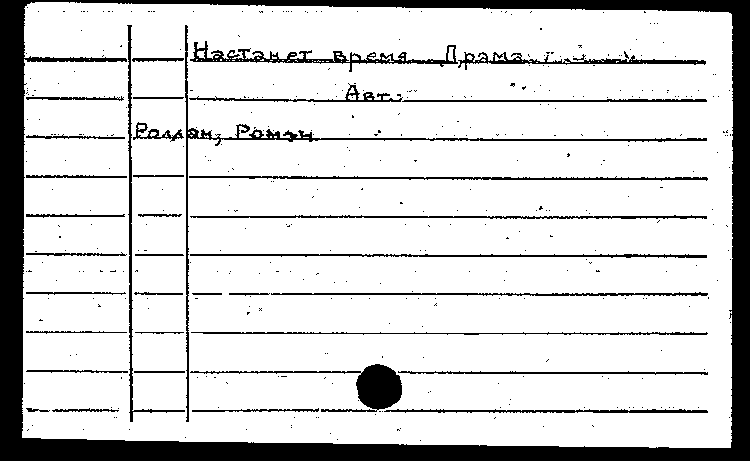 Настанет время. Драма
Авт.:
Роллан, Ромэн